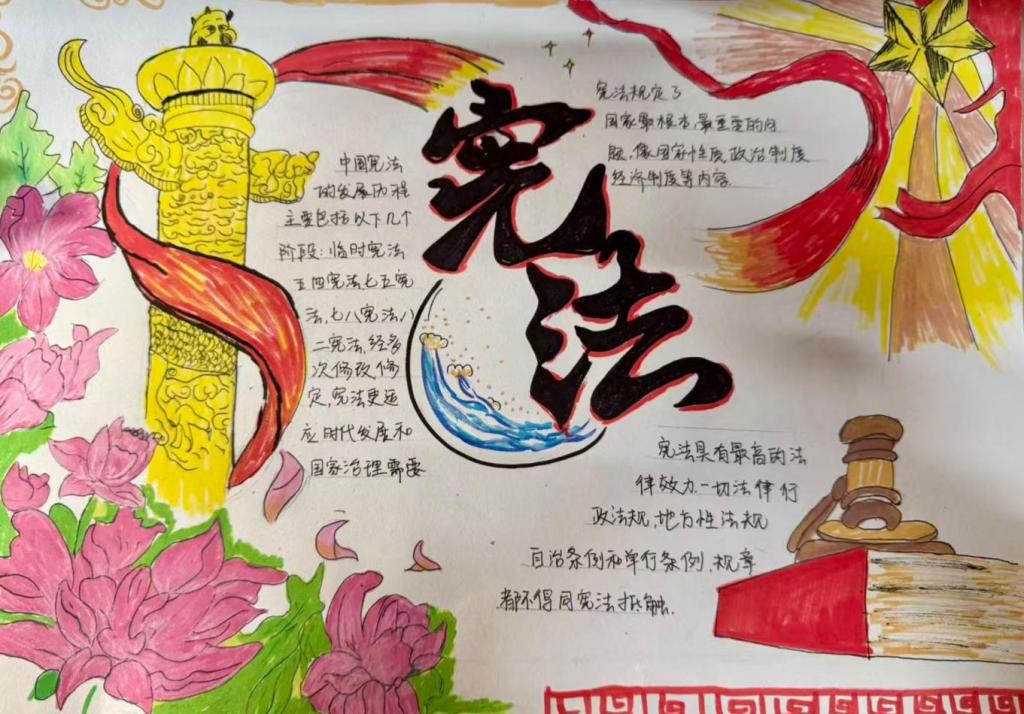 宪法
中国宪法
的发展历程
主要包括以下几个
阶段:临时宪法
五四宪法七五宪
法,七八宪法八
二宪法,经多
次修改修
定,宪法更适
应时代发展和
国家治理需要
宪法规定了
国家最根本,最重要的问
题,像国家性质,政治制度
经济制度等内容.
宪法具有最高的法
律效力.一切法律行
政法规,地方性法规
自治条例和单行条例、规章
都不得同宪法抵触.